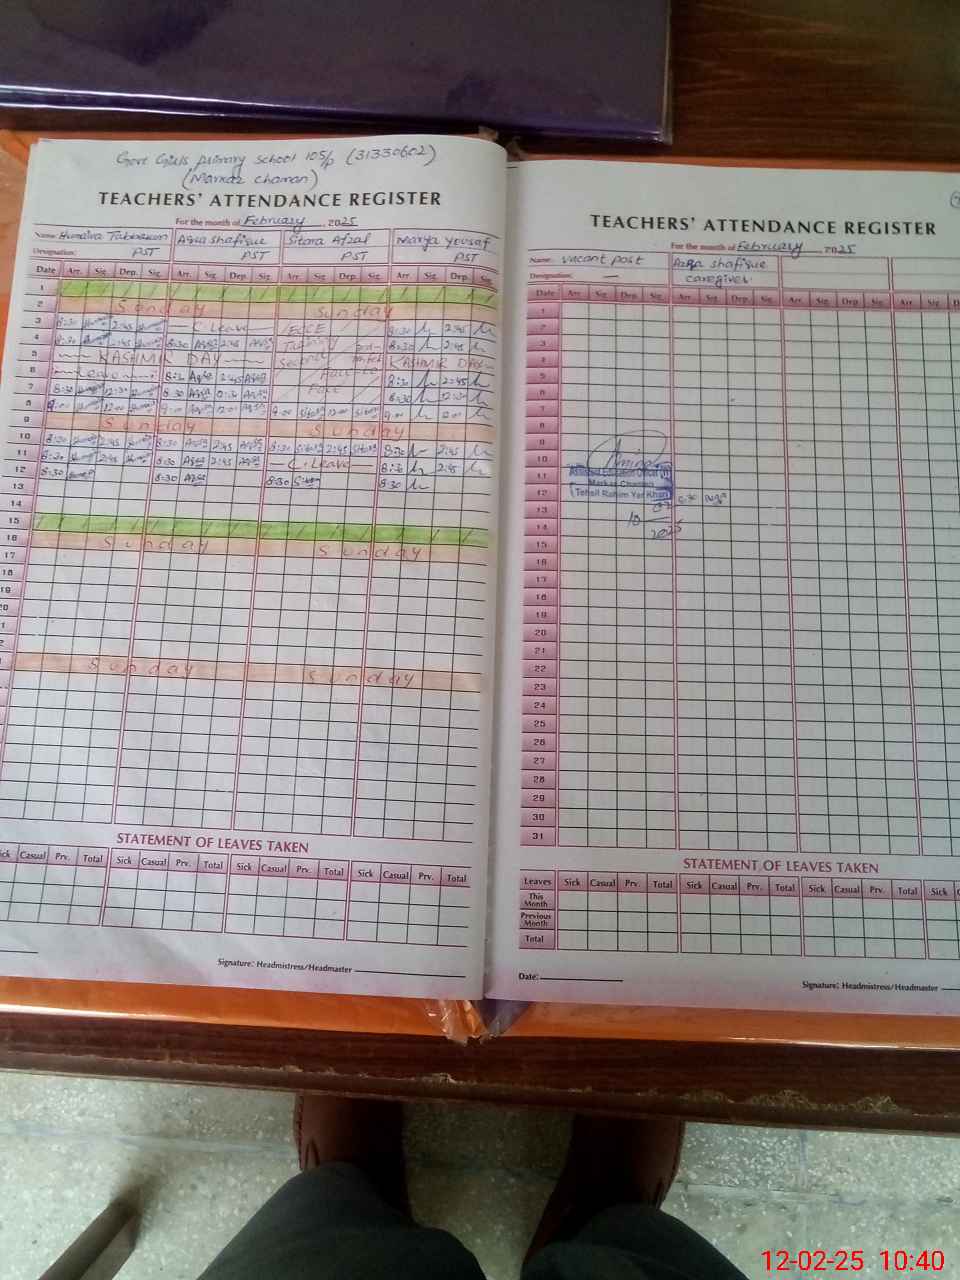 Govt Girls primary school 105/p (31330602)
(Markaz chaman)
TEACHERS' ATTENDANCE REGISTER
For the month of February 2025
Name: Humaira Tabassum Aqsa shafique Sitara Afzal Marya yousaf
Designation: PST PST PST PST
Date Arr. Sig. Dep. Sig. Arr. Sig. Dep. Sig. Arr. Sig. Dep. Sig. Arr. Sig. Dep. Sig.
1
2 Sunday Sunday
3 8:30 2:45 C. Leave ECCE 8:30 2:45
4 8:30 2:45 8:30 2:45 8:30 2:45
5 KASHMIR DAY Second KASHMIR DAY
6 Leave 8:30 2:45 Face 8:30 2:45
7 8:30 12:30 8:30 Face 8:30 12:30
8 9:00 12:00 9:00 12:00 9:00 12:00 9:00 12:00
9 Sunday Sunday
10 8:30 2:45 8:30 2:45 8:30 2:45 8:30 2:45
11 8:30 2:45 8:30 2:45 C. Leave 8:30 2:45
12 8:30 8:30 8:30 8:30
13
14
15
16 Sunday Sunday
17
18
19
20
Sunday Sunday
STATEMENT OF LEAVES TAKEN
Casual Prv. Total Sick Casual Prv. Total Sick Casual Prv. Total Sick Casual Prv. Total
Signature: Headmistress/Headmaster
TEACHERS' ATTENDANCE REGISTER
For the month of February 2025
Name: vacant post Azra shafique
Designation: — caregiver
Date Arr. Sig. Dep. Sig. Arr. Sig. Dep. Sig. Arr. Sig. Dep. Sig. Arr. Sig.
1
2
3
4
5
6
7
8
9
10
11 Assistant Education Officer
Markaz Chaman
12 Tehsil Rahim Yar Khan
13
10
14 2025
15
16
17
18
19
20
21
22
23
24
25
26
27
28
29
30
31
STATEMENT OF LEAVES TAKEN
Leaves Sick Casual Prv. Total Sick Casual Prv. Total Sick Casual Prv. Total Sick
This Month
Previous Month
Total
Date:
Signature: Headmistress/Headmaster
12-02-25 10:40